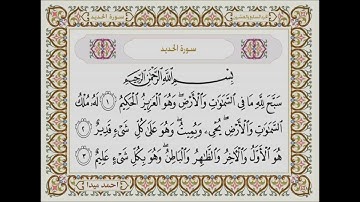 سورة الحديد
سورة الحديد
بِسْمِ اللَّهِ الرَّحْمَٰنِ الرَّحِيمِ
سَبَّحَ لِلَّهِ مَا فِي السَّمَٰوَٰتِ وَالْأَرْضِ ۖ وَهُوَ الْعَزِيزُ الْحَكِيمُ ١ لَهُ مُلْكُ
السَّمَٰوَٰتِ وَالْأَرْضِ ۖ يُحْيِي وَيُمِيتُ ۖ وَهُوَ عَلَىٰ كُلِّ شَيْءٍ قَدِيرٌ ٢
هُوَ الْأَوَّلُ وَالْآخِرُ وَالظَّاهِرُ وَالْبَاطِنُ ۖ وَهُوَ بِكُلِّ شَيْءٍ عَلِيمٌ ٣